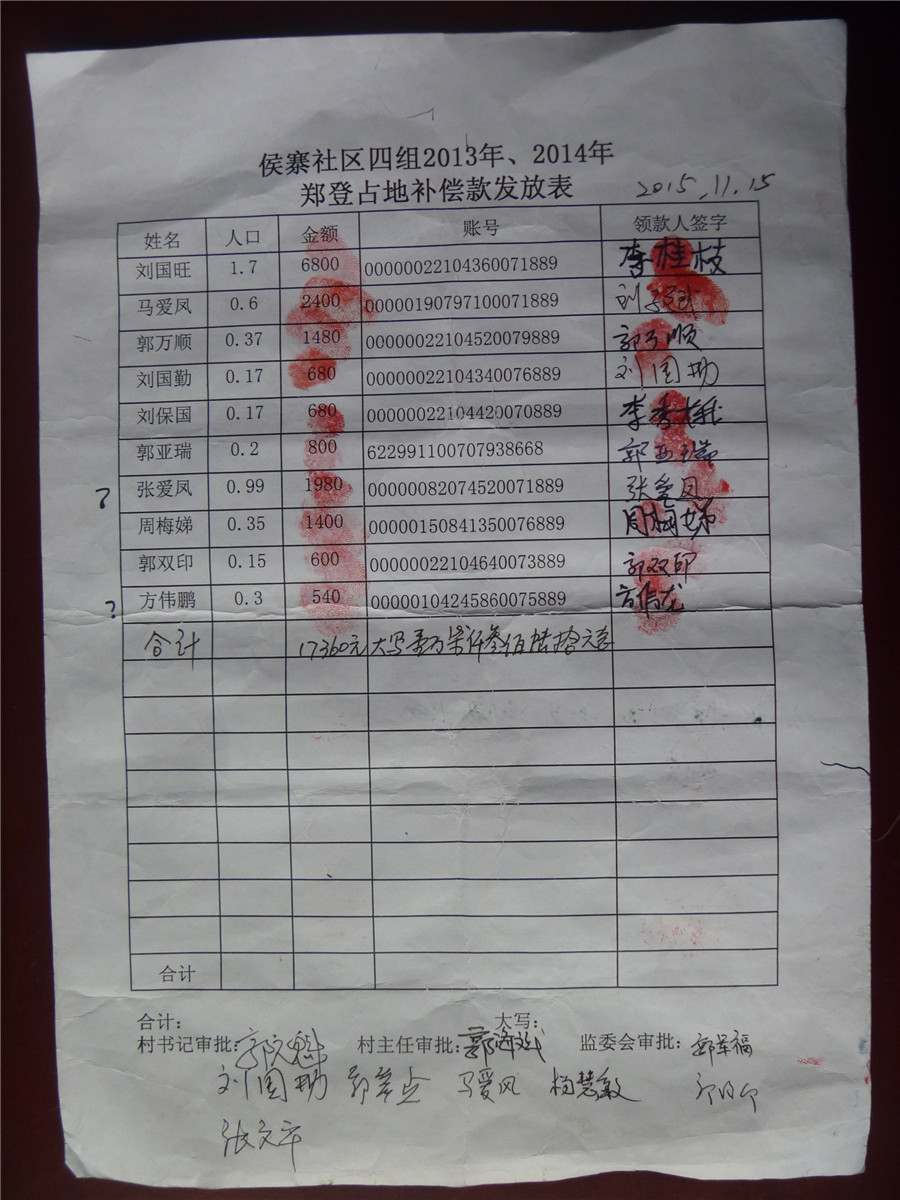 侯寨社区四组2013年、2014年
郑登占地补偿款发放表
2015.11.15
姓名 人口 金额 账号 领款人签字
刘国旺 1.7 6800 00000022104360071889 李桂枝
马爱凤 0.6 2400 00000190797100071889 刘
郭万顺 0.37 1480 00000022104520079889 郭万顺
刘国勤 0.17 680 00000022104340076889 刘国勤
刘保国 0.17 680 00000022104420070889 李秀
郭亚瑞 0.2 800 622991100707938668 郭亚瑞
? 张爱凤 0.99 1980 00000082074520071889 张爱凤
周梅娣 0.35 1400 00000150841350076889 周梅娣
郭双印 0.15 600 00000022104640073889 郭双印
? 方伟鹏 0.3 540 00000104245860075889 方伟龙
合计 17360元 大写壹万柒仟叁佰陆拾元
合计
合计: 大写:
村书记审批: 村主任审批: 监委会审批: 郭军福
刘国勤 马爱凤 杨慧敏
张文平